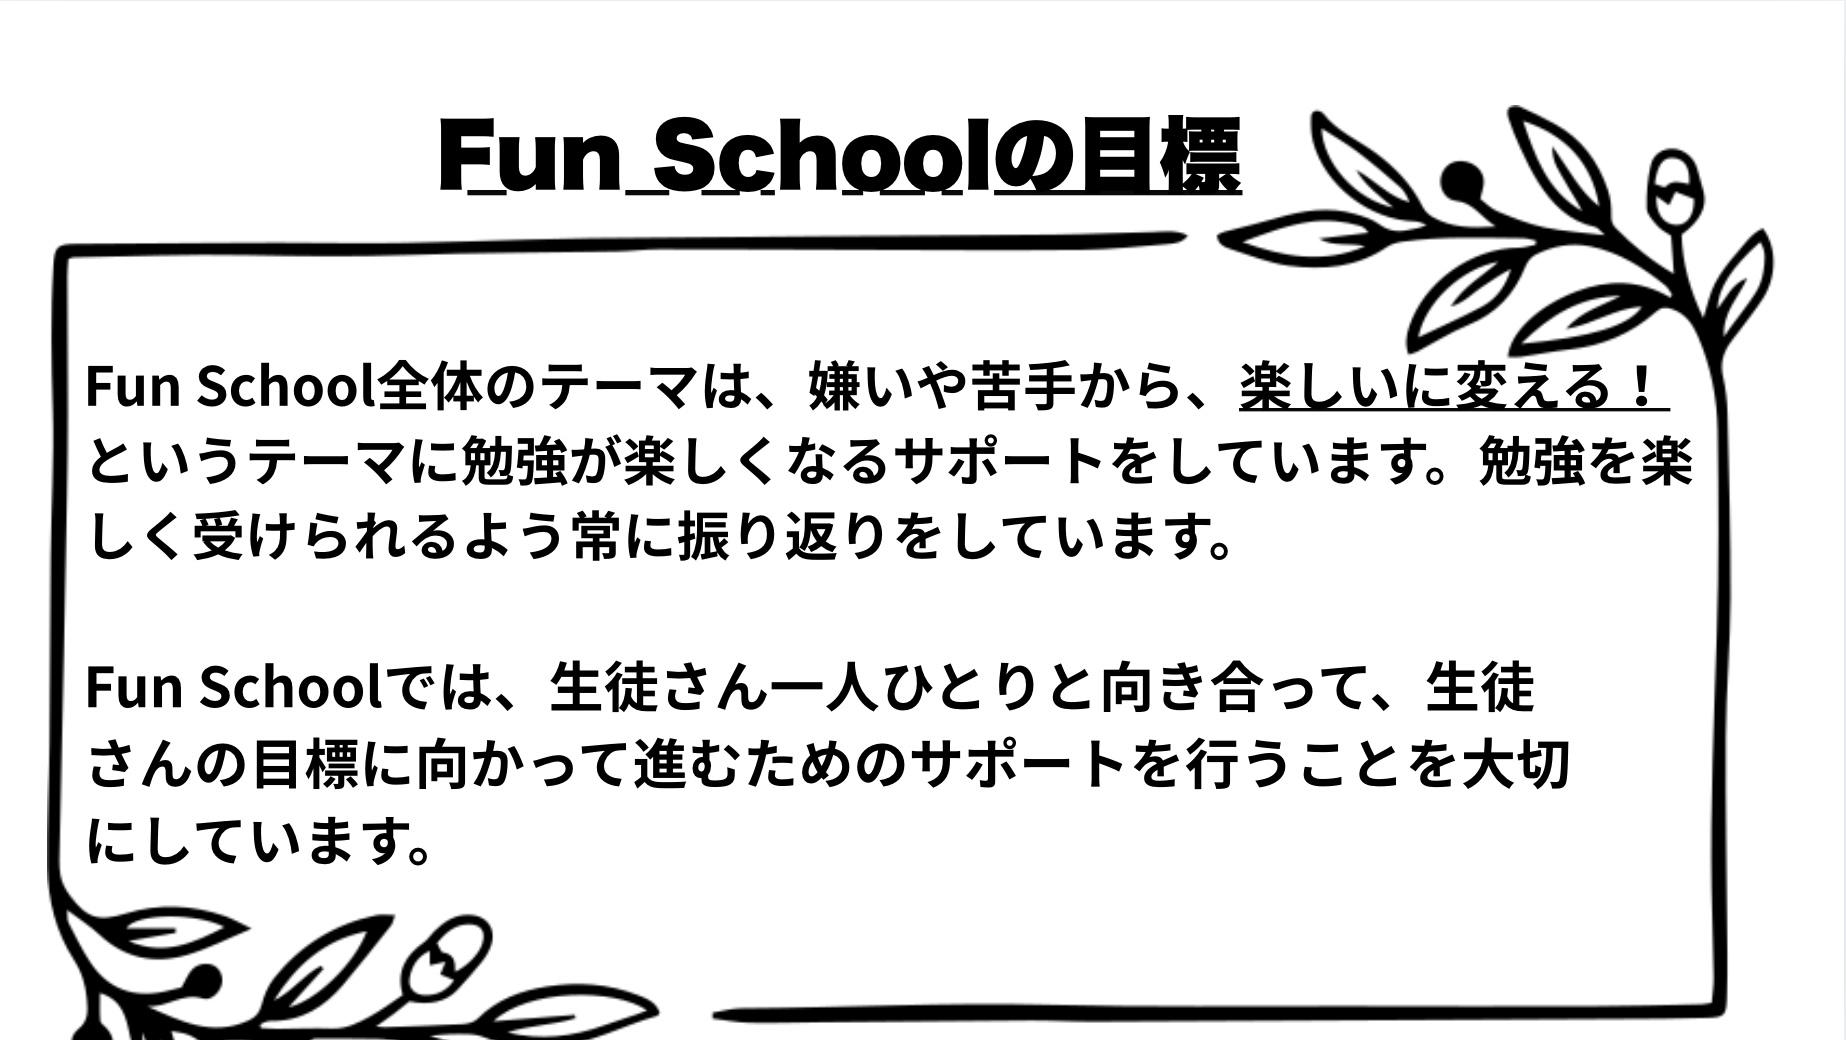 Fun Schoolの目標
Fun School全体のテーマは、嫌いや苦手から、楽しいに変える！
というテーマに勉強が楽しくなるサポートをしています。勉強を楽
しく受けられるよう常に振り返りをしています。
Fun Schoolでは、生徒さん一人ひとりと向き合って、生徒
さんの目標に向かって進むためのサポートを行うことを大切
にしています。